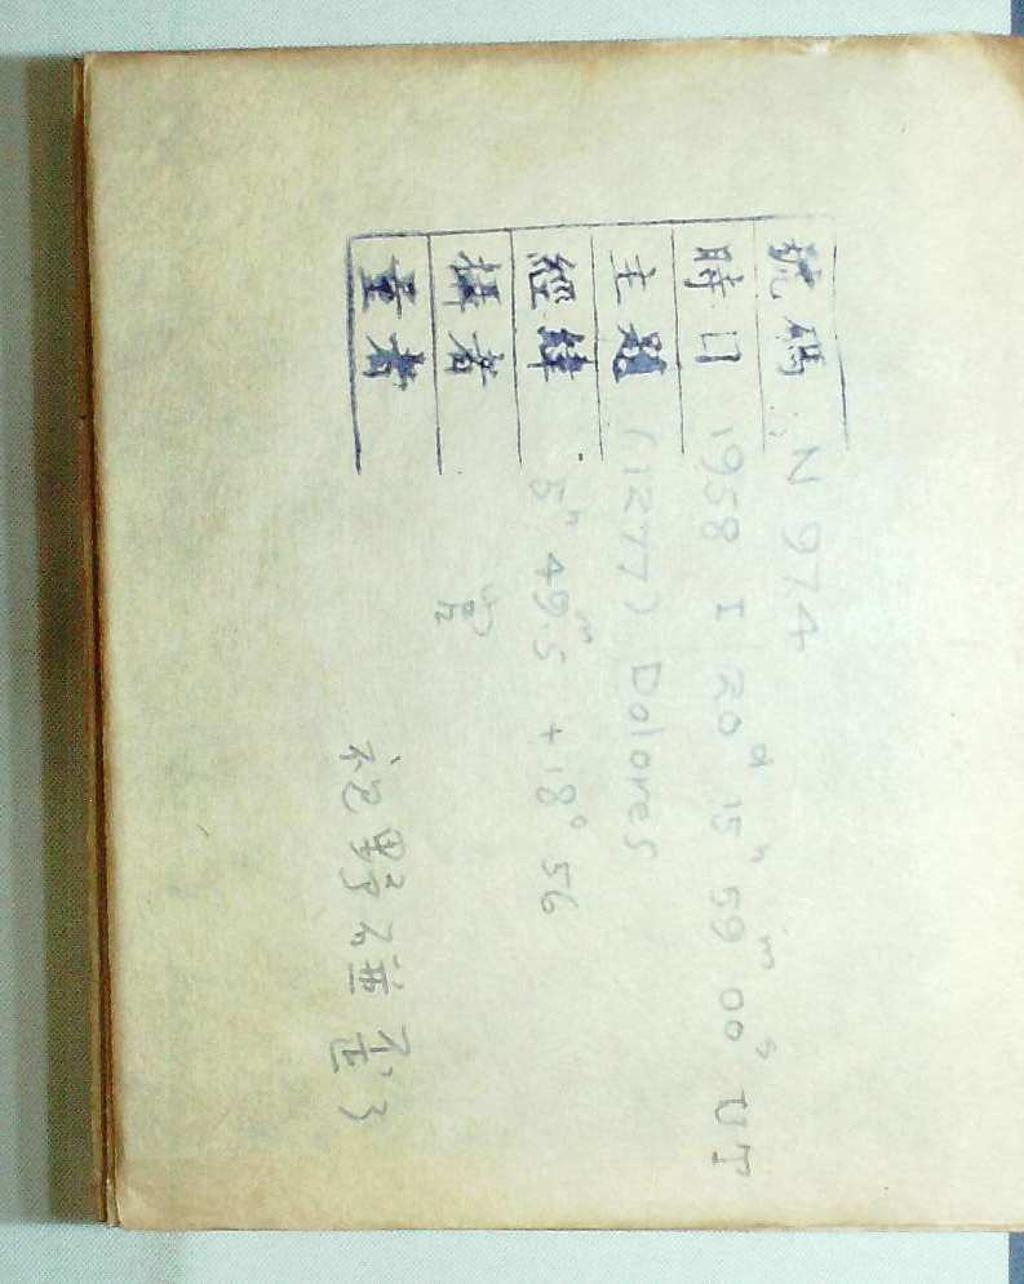 號碼 N 974
時日 1958 I 20ᵈ 15ʰ 59ᵐ 00ˢ UT
主題 (1277) Dolores
經緯 5ʰ 49ᵐ.5 +18° 56
攝者 宫
量者
野 歪了